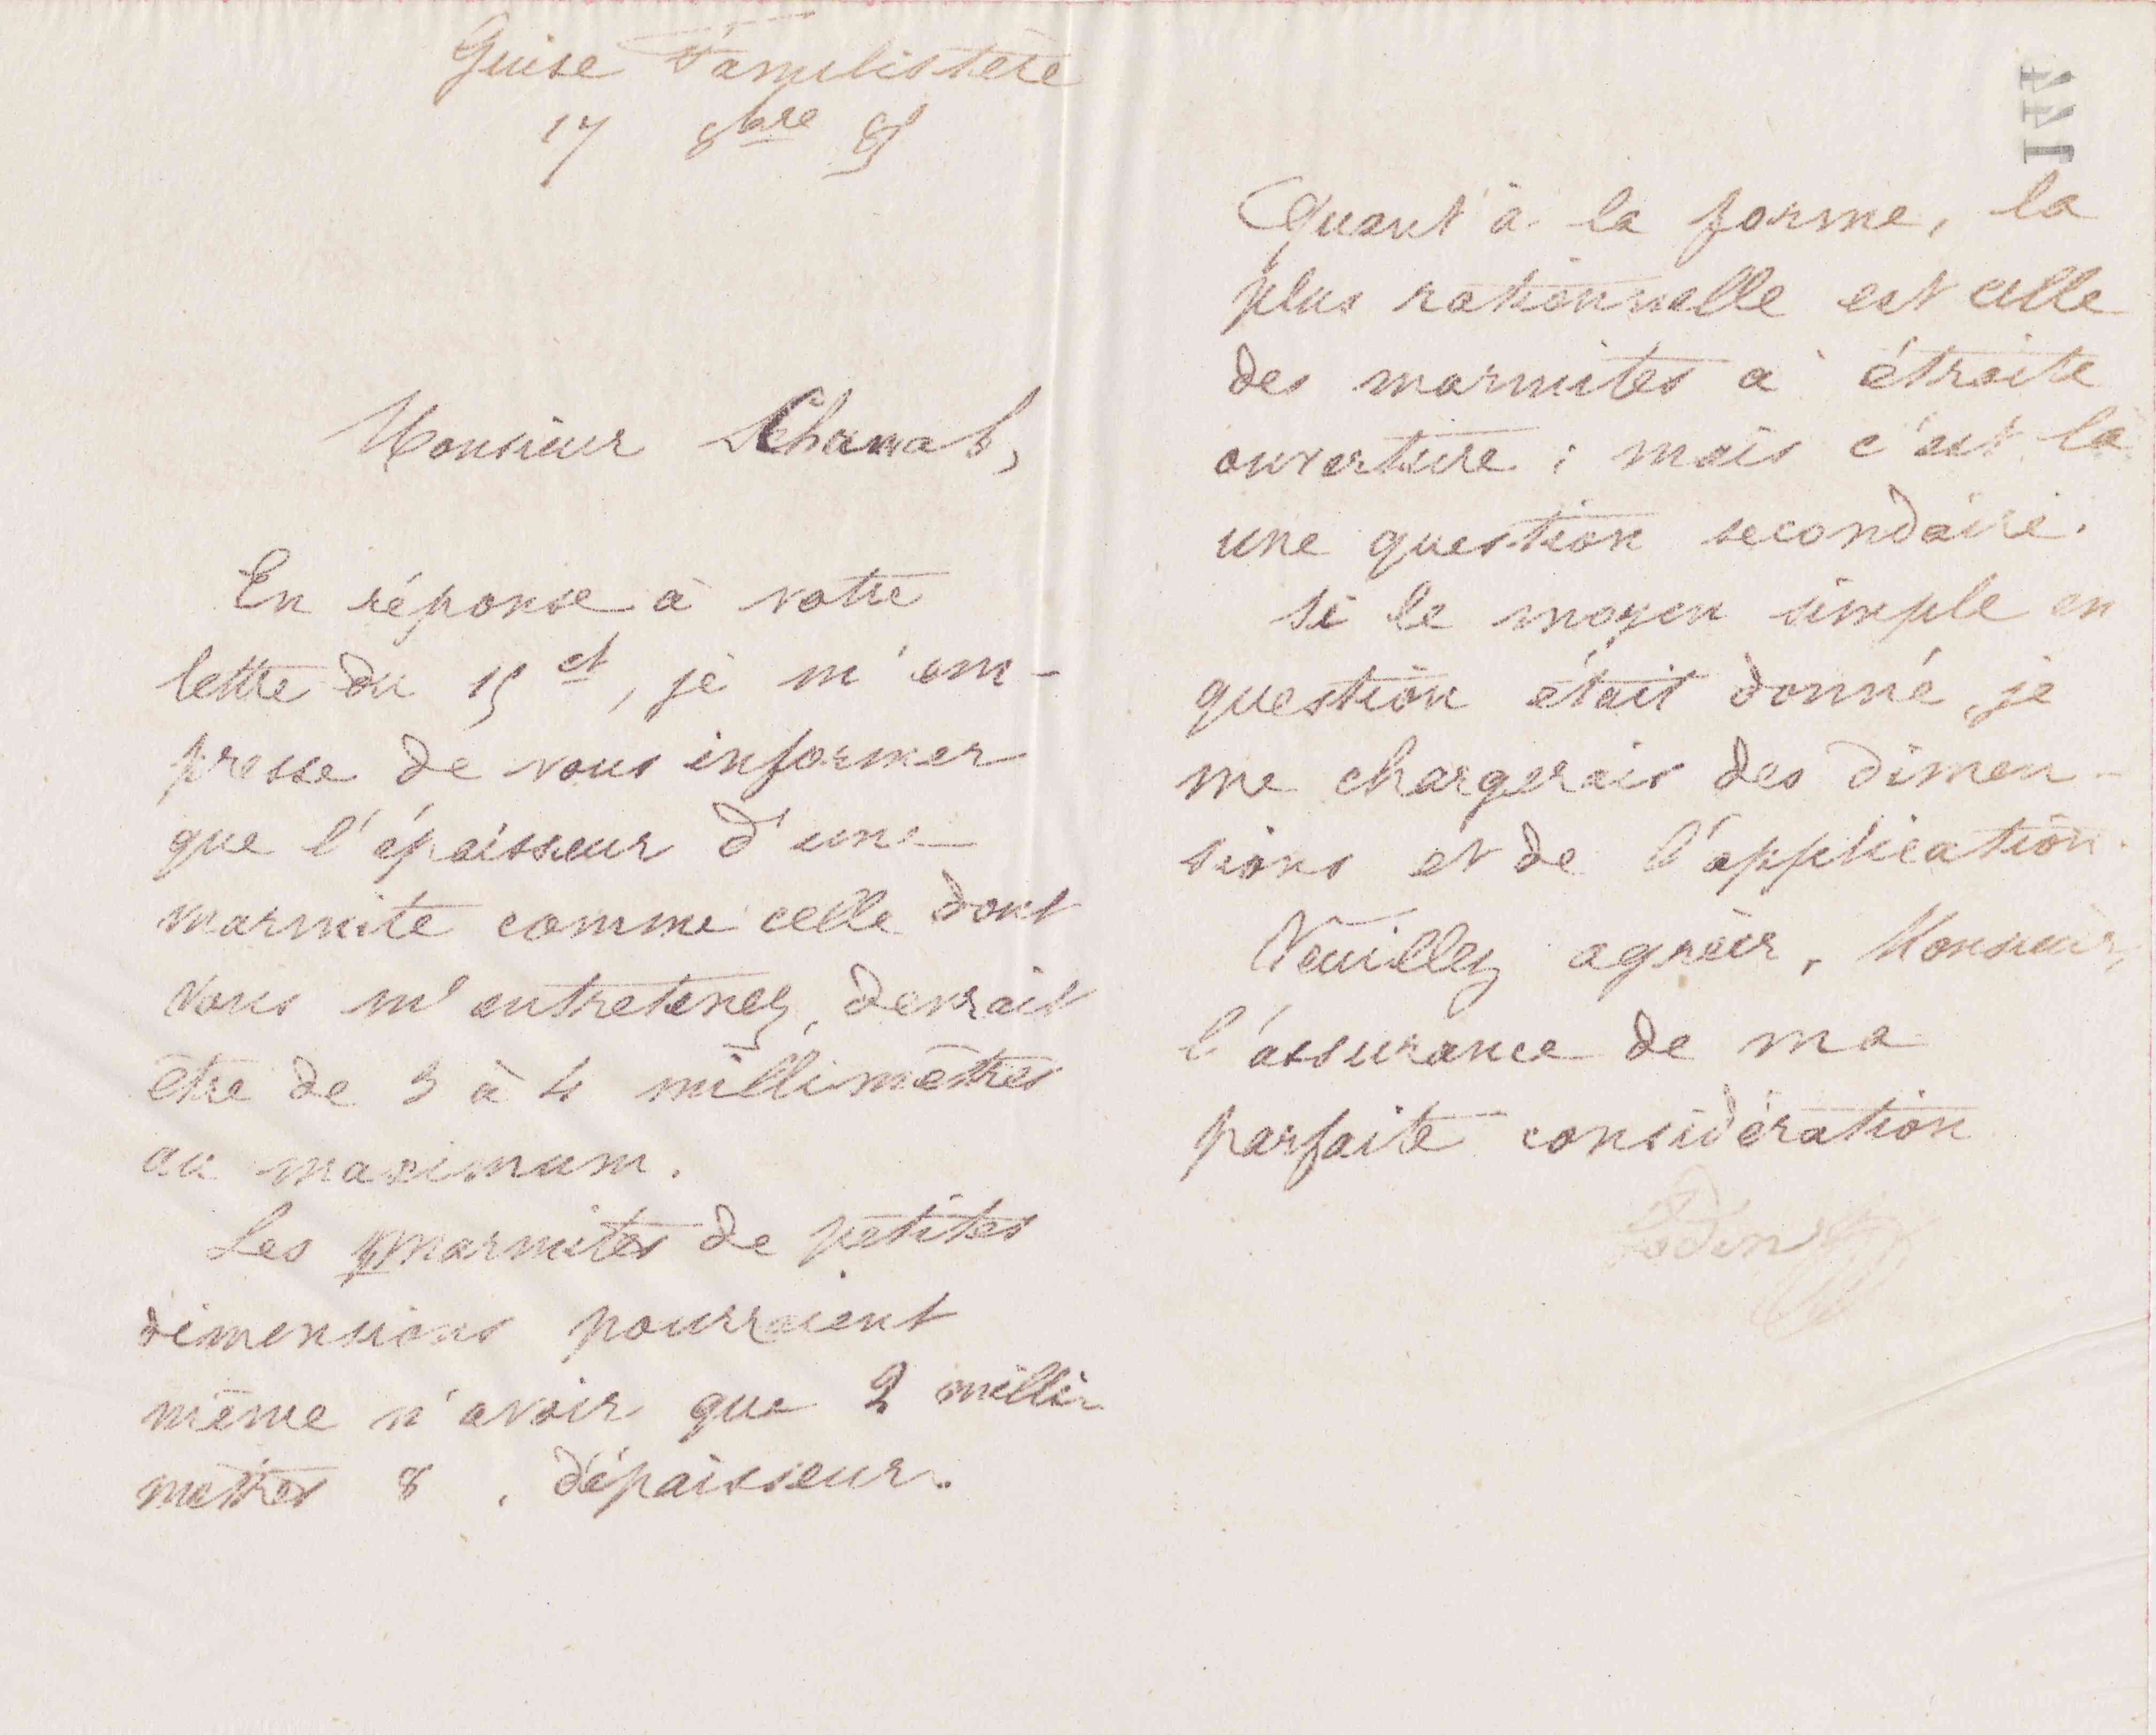 Guise Familistère
17 8bre 85
Monsieur Schwab,
En réponse à votre
lettre du 15 ct, je m'em-
presse de vous informer
que l'épaisseur d'une
marmite comme celle dont
vous m'entretenez, devrait
être de 3 à 4 millimètres
au maximum.
Les marmites de petites
dimensions pourraient
même n'avoir que 2 milli-
mètres 8, d'épaisseur.
Quant à la forme, la
plus rationnelle est celle
des marmites à étroite
ouverture ; mais c'est là
une question secondaire.
Si le moyen simple en
question était donné, je
me chargerais des dimen-
sions et de l'application.
Veuillez agréer, Monsieur,
l'assurance de ma
parfaite considération
Godin